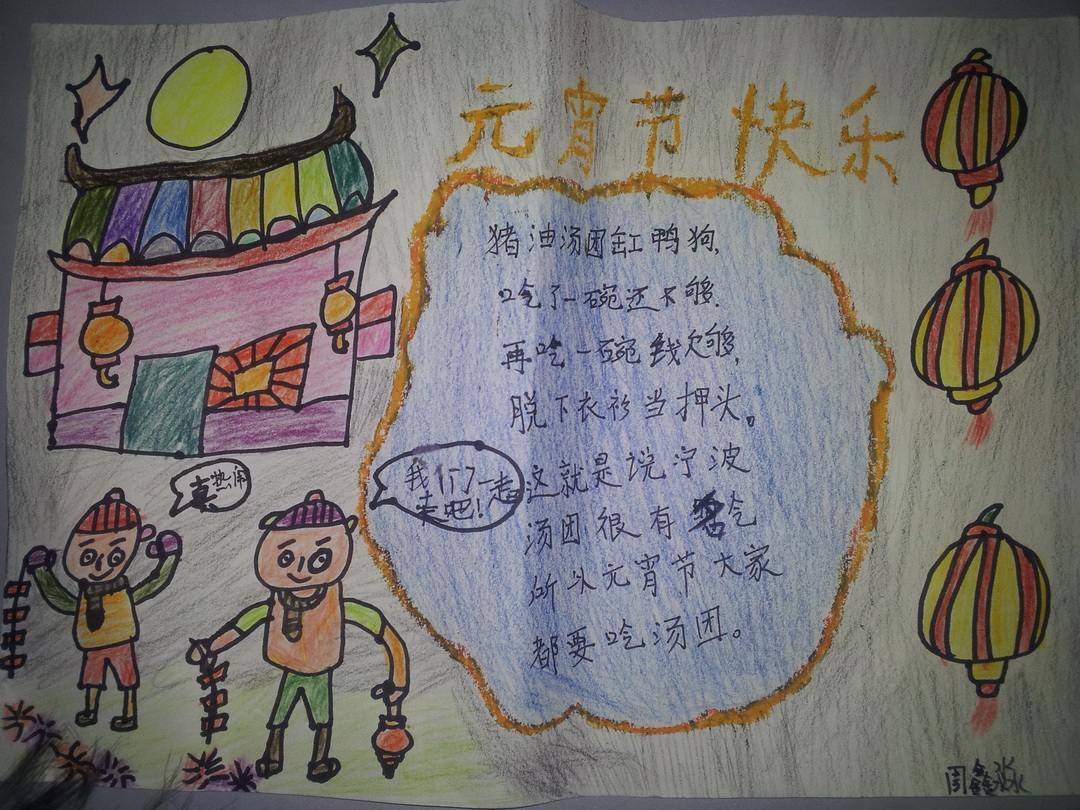 元宵节快乐
猪油汤团缸鸭狗,
吃了一碗还不够.
再吃一碗钱欠够,
脱下衣衫当押头。
这就是说宁波
汤团很有名气
所以元宵节大家
都要吃汤团。
我们一起
去吧!
真热闹
周鑫淼